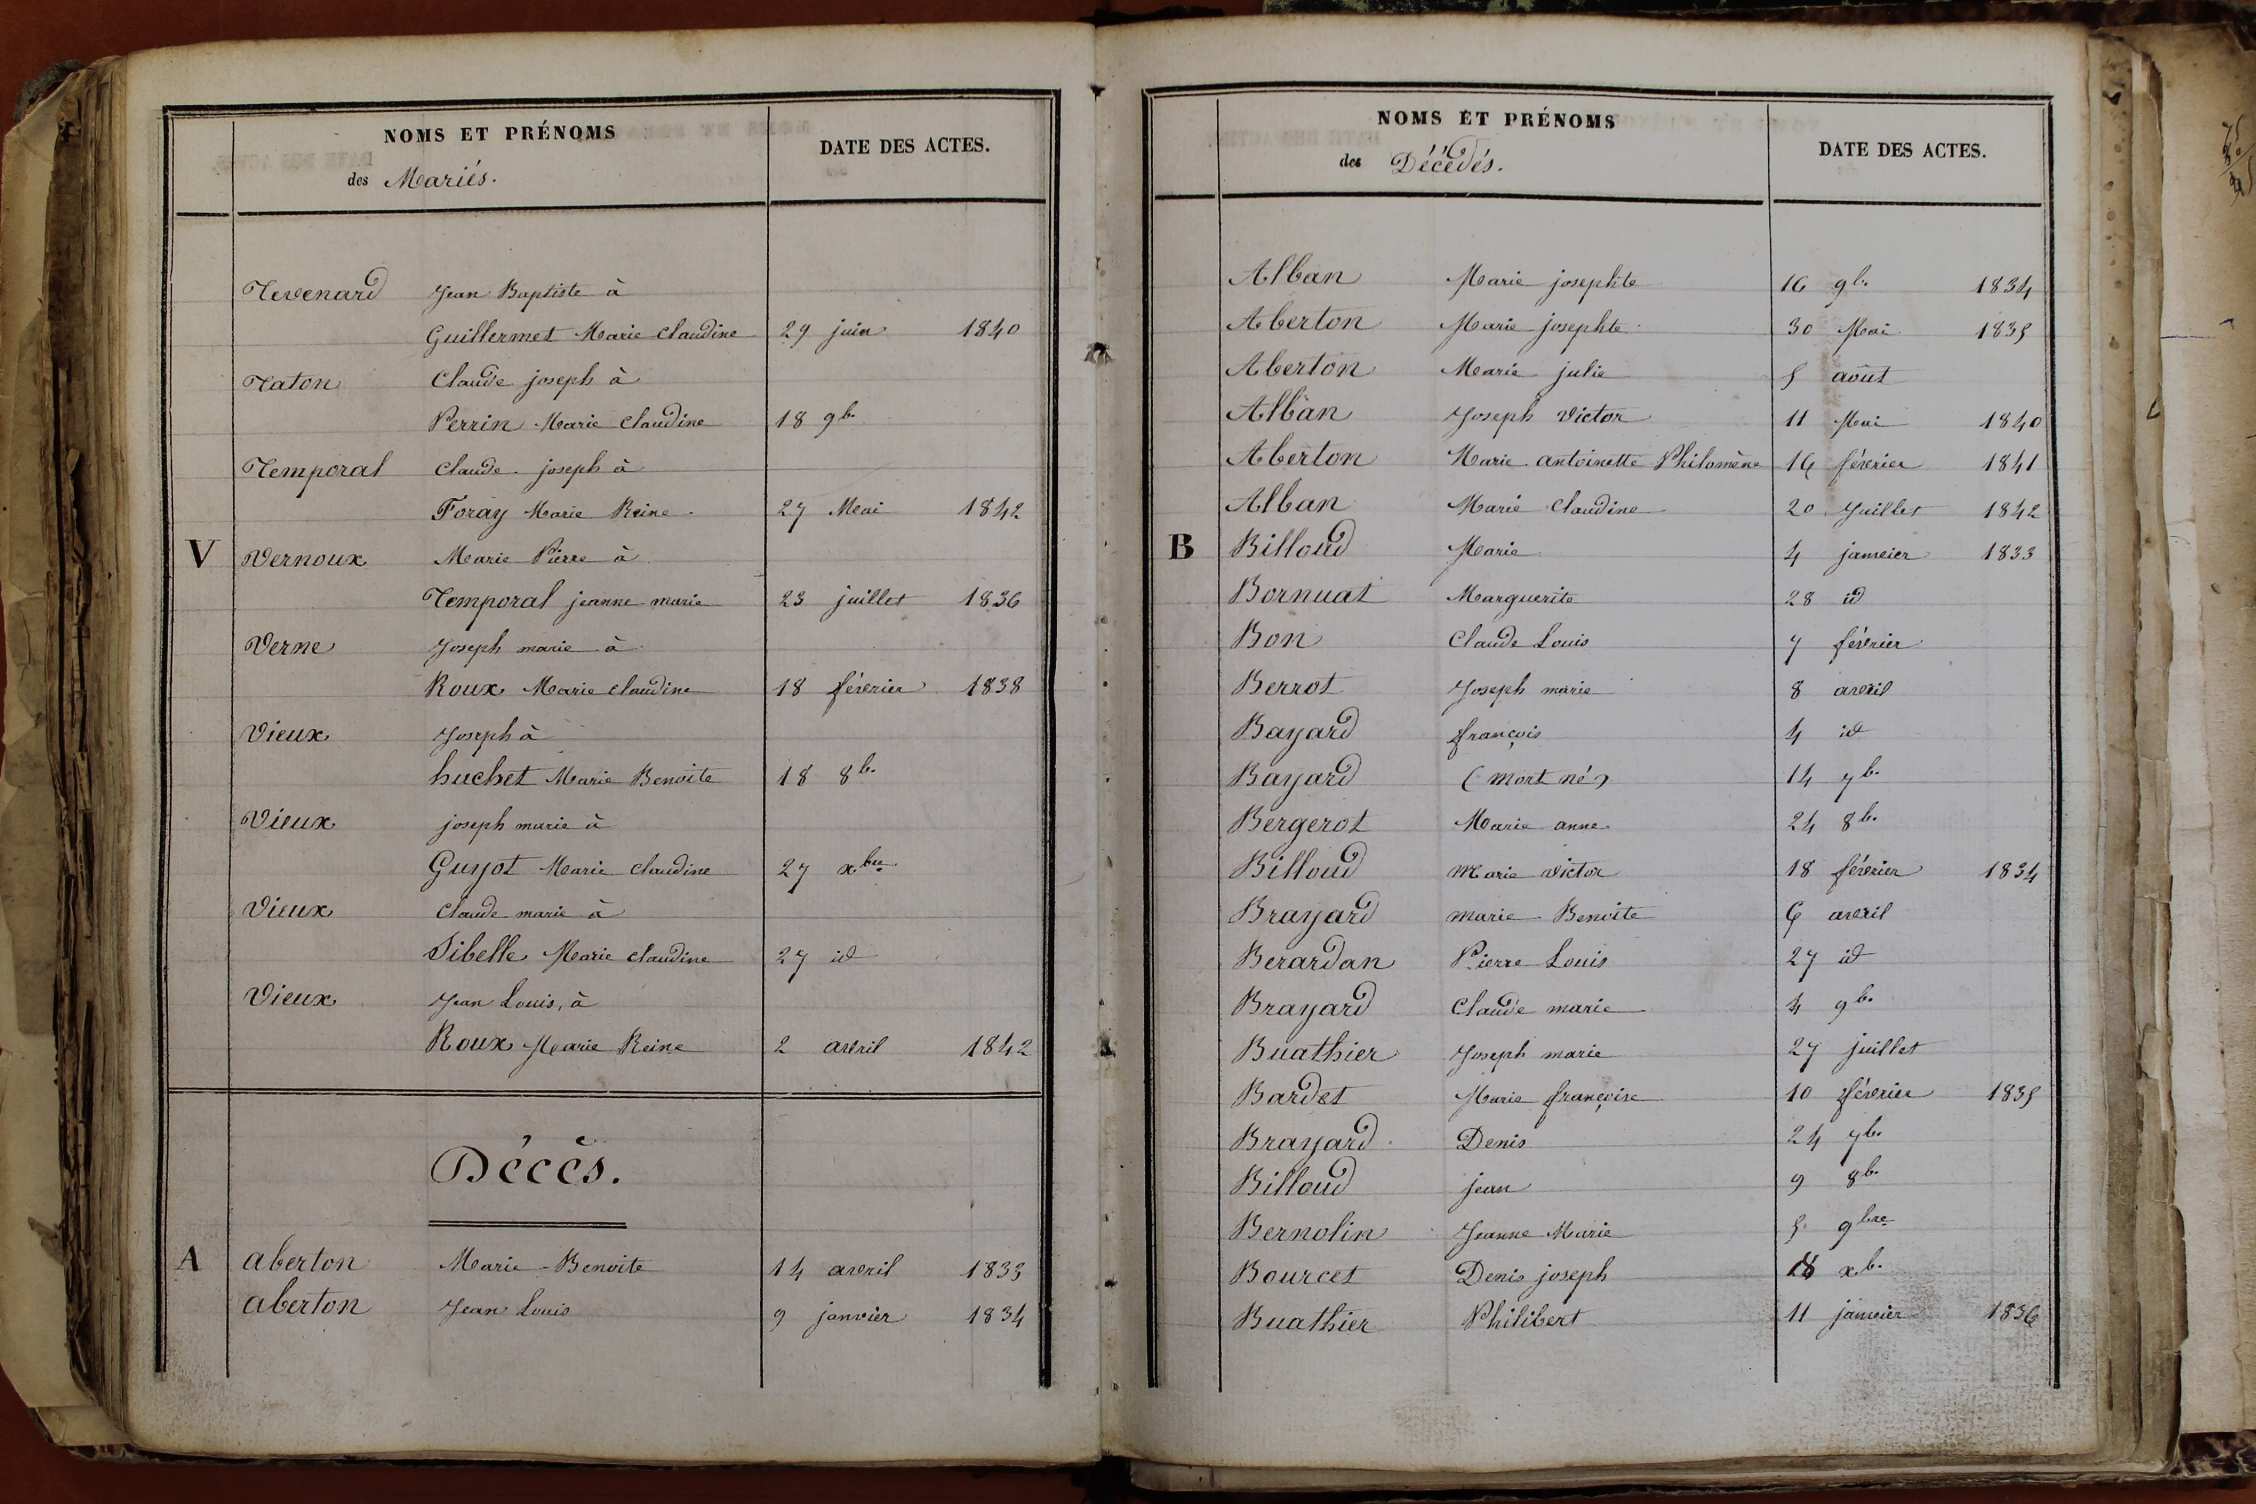 NOMS ET PRÉNOMS
des Mariés.
DATE DES ACTES.
Tevenard Jean Baptiste à
Guillermet Marie Claudine 29 juin 1840
Taton Claude joseph à
Perrin Marie Claudine 18 9b.
Temporal Claude joseph à
Foray Marie Reine 27 Mai 1842
V Vernoux Marie Pierre à
Temporal jeanne marie 23 juillet 1836
Verne Joseph marie à
Roux Marie claudine 18 février 1838
Vieux Joseph à
huchet Marie Benoite 18 8b.
Vieux joseph marie à
Guyot Marie Claudine 27 xbre
Vieux Claude marie à
Sibelle Marie Claudine 27 id
Vieux Jean Louis, à
Roux Marie Reine 2 avril 1842
Décès.
A aberton Marie-Benoite 14 avril 1833
aberton Jean Louis 9 janvier 1834
NOMS ET PRÉNOMS
des Décédés.
DATE DES ACTES.
Alban Marie josephte 16 9b. 1834
Aberton Marie josephte 30 Mai 1835
Aberton Marie julie 5 août
Alban Joseph Victor 11 Mai 1840
Aberton Marie antoinette Philomène 16 février 1841
Alban Marie Claudine 20 Juillet 1842
B Billoud Marie 4 janvier 1833
Bornuat Marguerite 28 id
Bon Claude Louis 7 février
Berrot Joseph marie 8 avril
Bayard françois 4 id
Bayard (mort né) 14 7b.
Bergerot Marie anne 24 8b.
Billoud Marie victor 18 février 1834
Brayard marie Benoite 6 avril
Berardan Pierre Louis 27 id
Brayard Claude marie 4 9b.
Buathier Joseph marie 27 juillet
Bardet Marie françoise 10 février 1835
Brayard Denis 24 7b.
Billoud jean 9 8b.
Bernolin Jeanne Marie 5 9bre
Bourcet Denis joseph 18 xb.
Buathier Philibert 11 janvier 1836